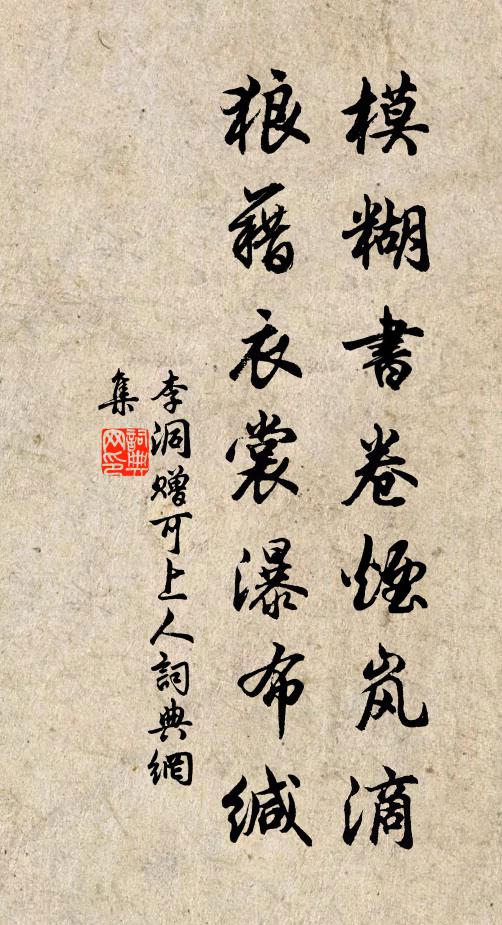 模糊書卷煙岚滴
狼藉衣裳瀑布缄
李洞赠可上人詞典網
集
詞典网印